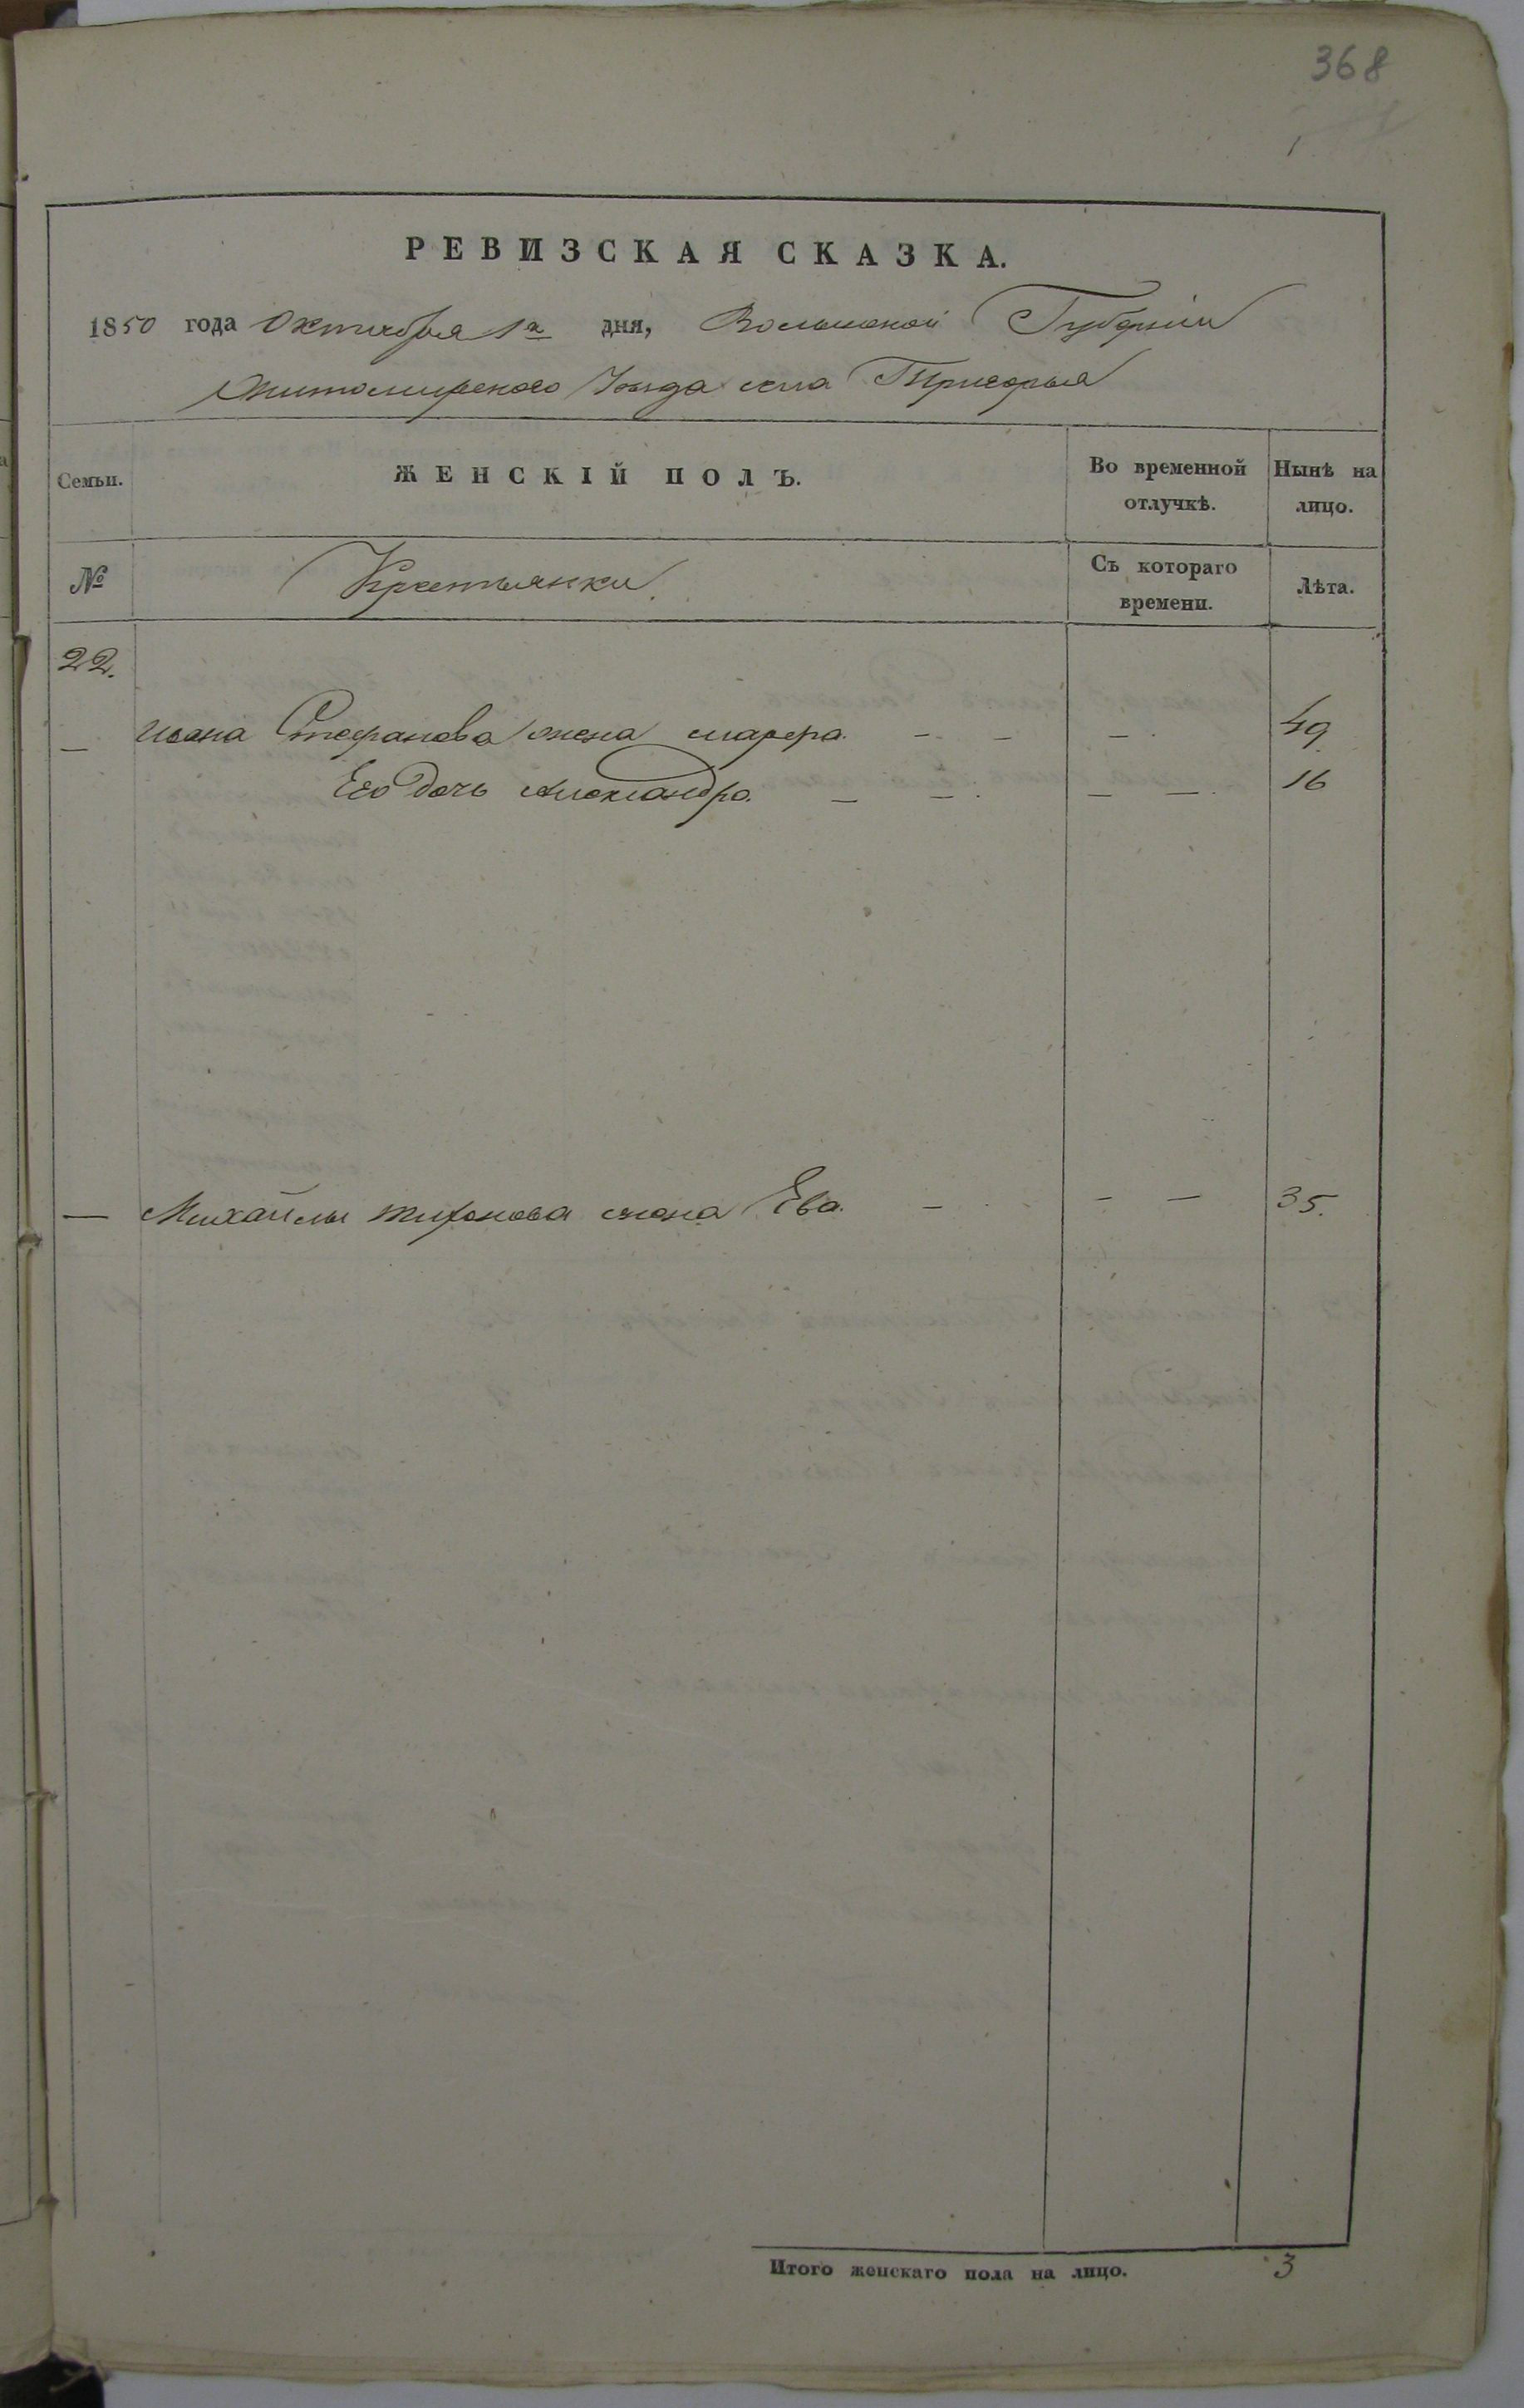 368
РЕВИЗСКАЯ СКАЗКА.
1850 года Октября 1го дня, Волынской Губернии
Житомирского Уезда села Тригорья
Семьи. ЖЕНСКІЙ ПОЛЪ. Во временной отлучкѣ. Нынѣ на лицо.
№ Крестьянки. Съ котораго времени. Лѣта.
22.
— Ивана Стефанова жена - - - 49
Его дочь Александра. — — — — 16
— Михайлы Тихонова жена Ева. — - — 35.
Итого женскаго пола на лицо. 3